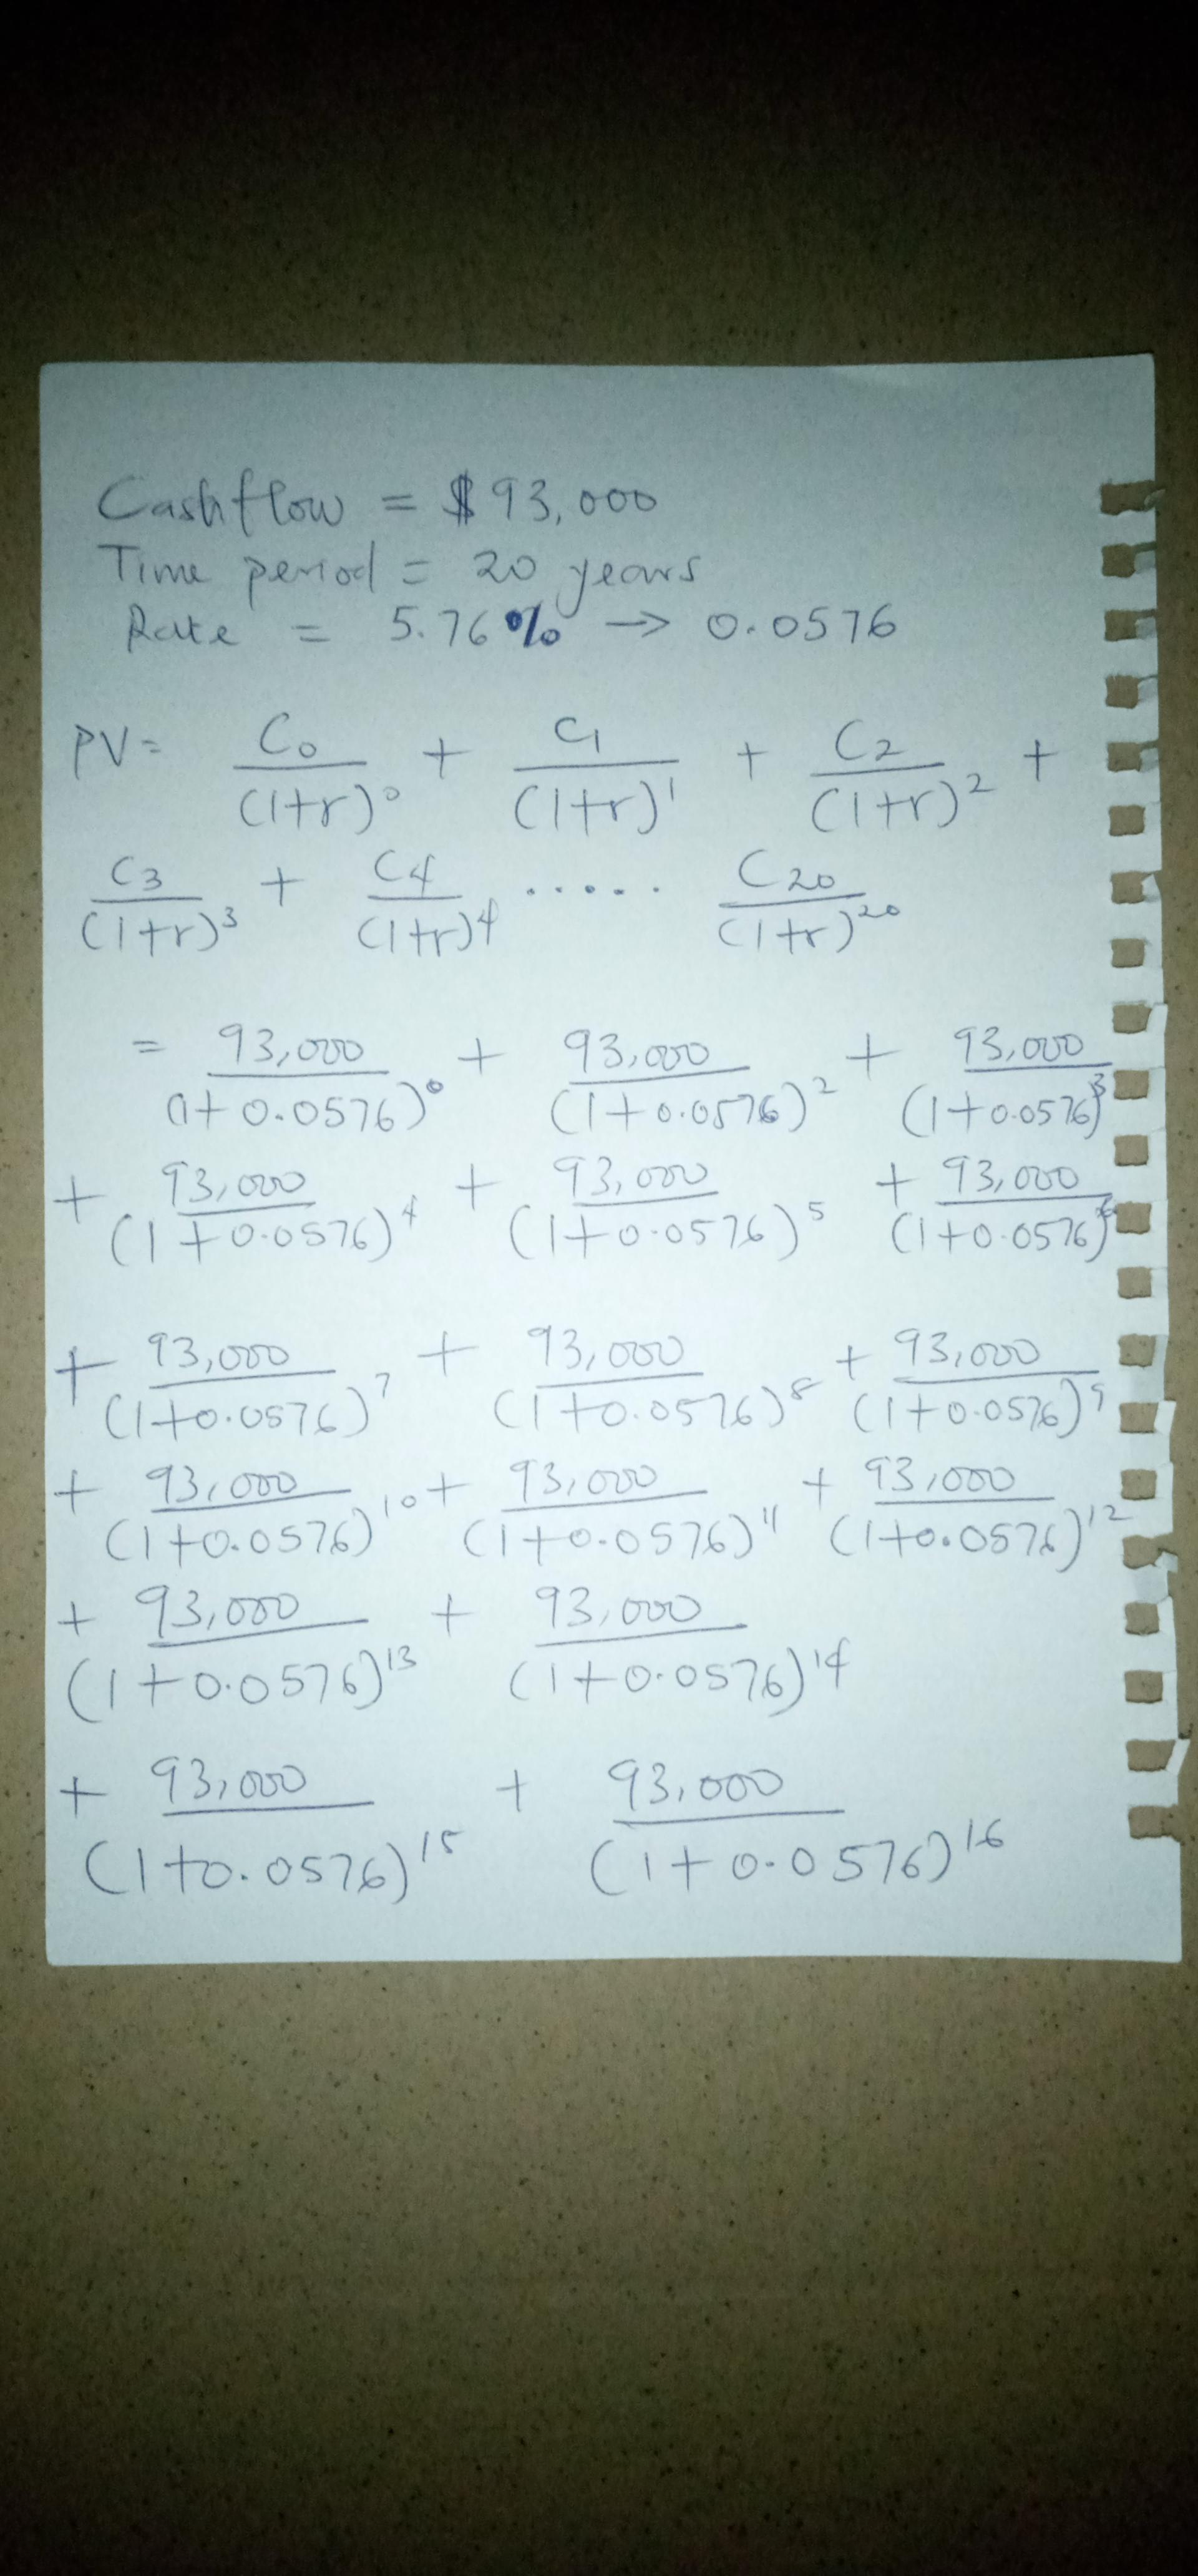 Cashflow = $93,000
Time period = 20 years
Rate = 5.76% → 0.0576
PV = C₀/(1+r)⁰ + C₁/(1+r)¹ + C₂/(1+r)² +
C₃/(1+r)³ + C₄/(1+r)⁴ ..... C₂₀/(1+r)²⁰
= 93,000/(1+0.0576)⁰ + 93,000/(1+0.0576)² + 93,000/(1+0.0576)³
+ 93,000/(1+0.0576)⁴ + 93,000/(1+0.0576)⁵ + 93,000/(1+0.0576)⁶
+ 93,000/(1+0.0576)⁷ + 93,000/(1+0.0576)⁸ + 93,000/(1+0.0576)⁹
+ 93,000/(1+0.0576)¹⁰ + 93,000/(1+0.0576)¹¹ + 93,000/(1+0.0576)¹²
+ 93,000/(1+0.0576)¹³ + 93,000/(1+0.0576)¹⁴
+ 93,000/(1+0.0576)¹⁵ + 93,000/(1+0.0576)¹⁶